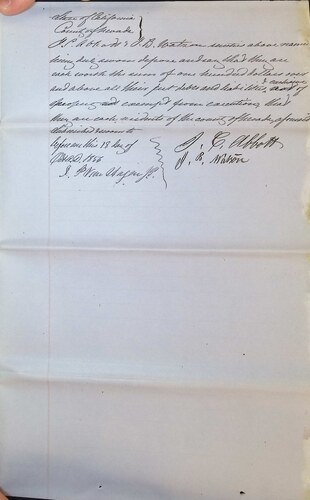 State of California
County of Nevada
J. C. Abbott & J. B. Watson sureties above named
being duly sworn depose and say that they are
each worth the sum of one hundred dollars over
and above all their just debts and liabilities, exclusive of
property exempt from execution, that
they are each residents of the county of Nevada, aforesaid
Subscribed & sworn to
before me this 18 day of
1856
J. P. Van Hagen J.P.
J. C. Abbott
J. B. Watson